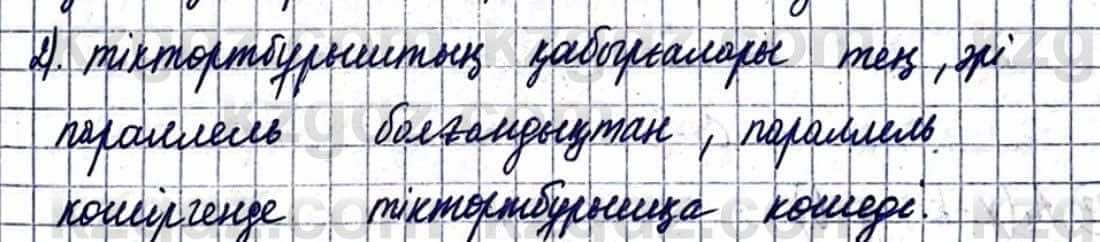 2). тіктөртбұрыштың қабырғалары тең, әрі
параллель болғандықтан, параллель
көшіргенде тіктөртбұрышқа көшеді.